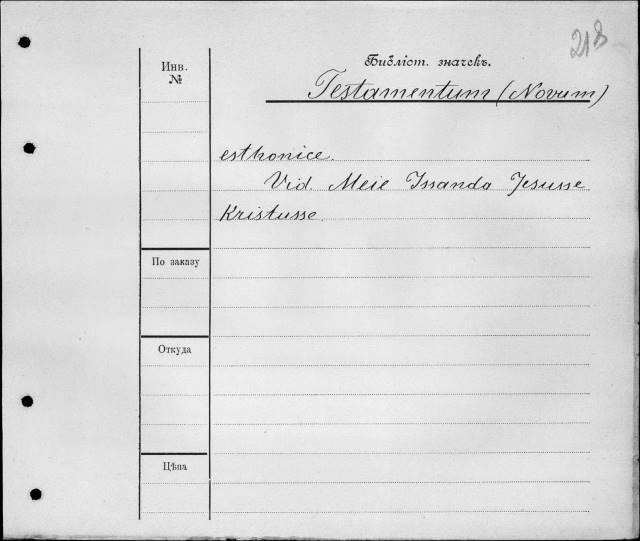 218
Инв.
№
Библіот. значекъ.
Testamentum (Novum)
esthonice.
Vid. Meie Issanda Jesusse
Kristusse.
По заказу
Откуда
Цѣна